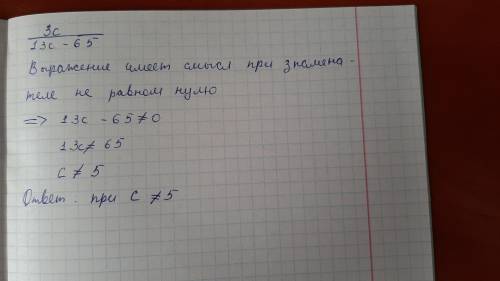 3c
13c - 65
Выражение имеет смысл при знамена-
теле не равном нулю
=> 13c - 65 ≠ 0
13c ≠ 65
c ≠ 5
Ответ. при c ≠ 5